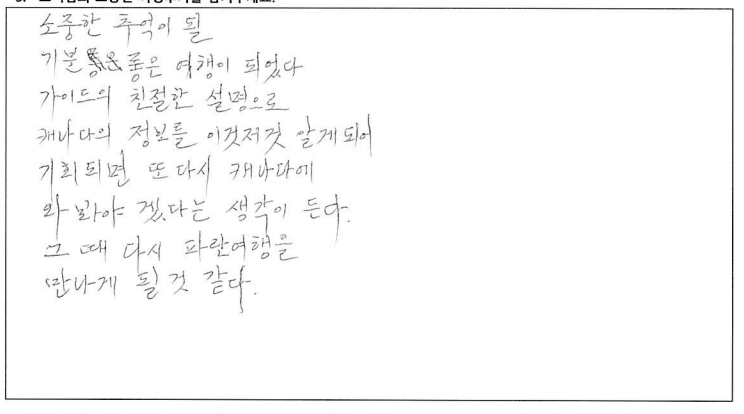 소중한 추억이 될
기분 좋은 여행이 되었다
가이드의 친절한 설명으로
캐나다의 정보를 이것저것 알게되어
기회되면 또 다시 캐나다에
와 봐야 겠다는 생각이 든다.
그 때 다시 파란여행을
만나게 될 것 같다.